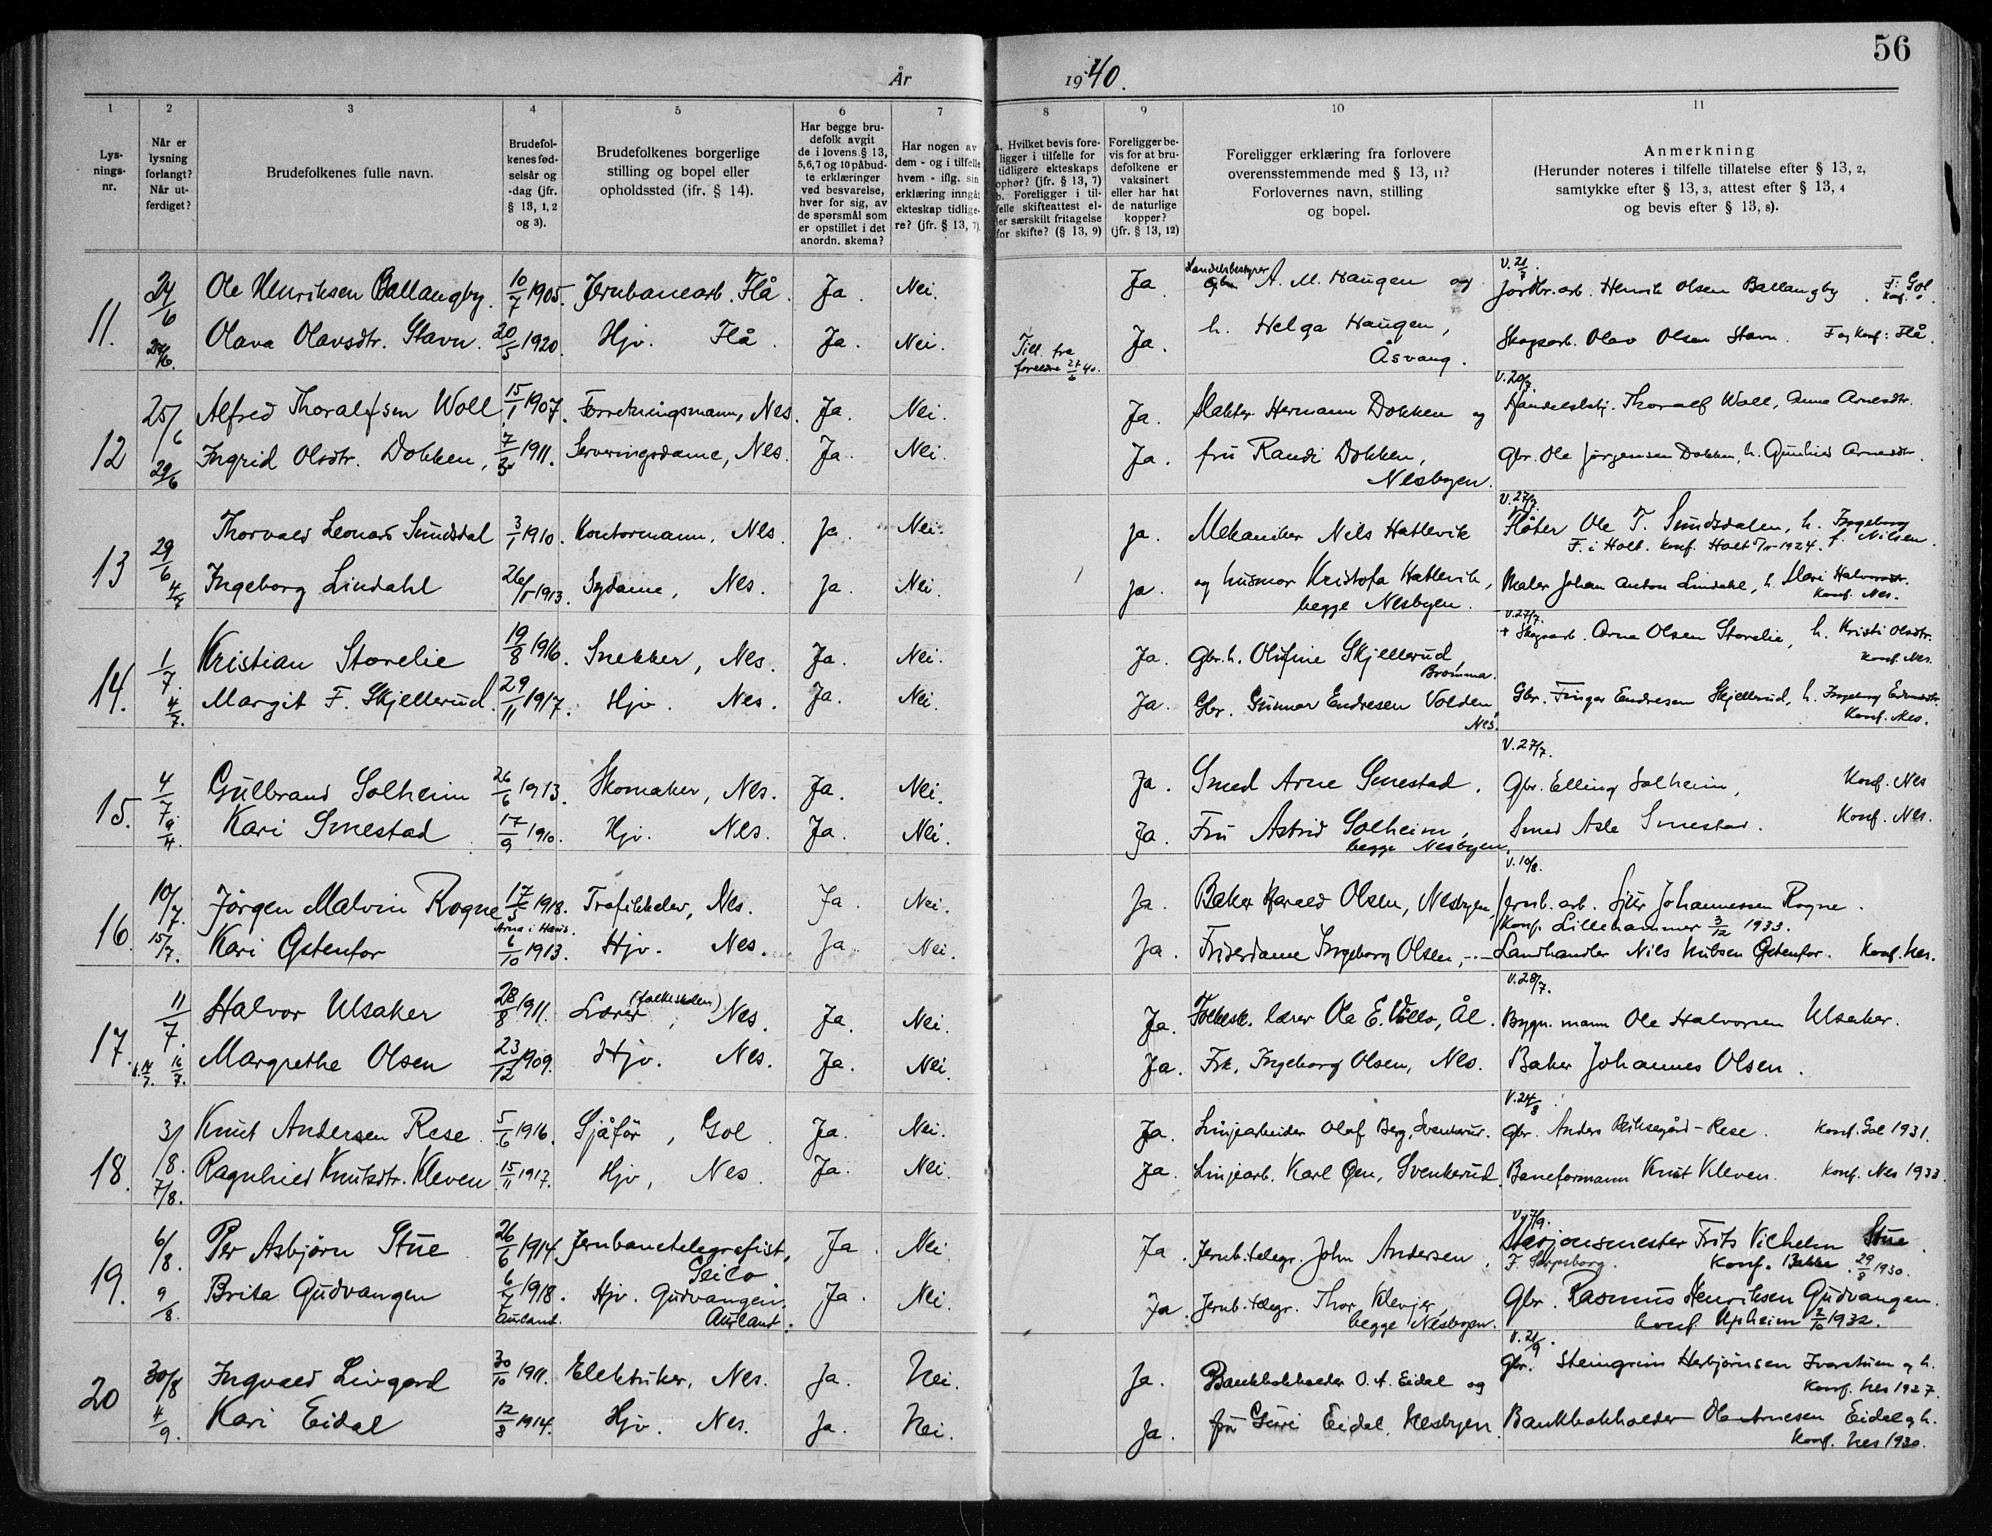 56
År 1940.
1 2 3 4 5 6 7 8 9 10 11
Lysningsnr.
Når er lysning forlangt? Når utferdiget?
Brudefolkenes fulle navn.
Brudefolkenes fødselsår og -dag (jfr. § 13, 1, 2 og 3).
Brudefolkenes borgerlige stilling og bopel eller opholdssted (jfr. § 14).
Har begge brudefolk avgitt de i lovens § 13, 5, 6, 7 og 10 påbudte erklæringer ved besvarelse, hver for sig, av de spørsmål som er opstillet i det anordn. skema?
Har nogen av dem - og i tilfelle hvem - iflg. sin erklæring inngått ekteskap tidligere? (jfr. § 13, 7)
a. Hvilket bevis foreligger i tilfelle for tidligere ekteskaps ophør? (jfr. § 13, 7) b. Foreligger i tilfelle skifteattest eller særskilt fritagelse for skifte? (§ 13, 9)
Foreligger bevis for at brudefolkene er vaksinert eller har hat de naturlige kopper? (jfr. § 13, 12)
Foreligger erklæring fra forlovere overensstemmende med § 13, 11? Forlovernes navn, stilling og bopel.
Anmerkning (Herunder noteres i tilfelle tillatelse efter § 13, 2, samtykke efter § 13, 3, attest efter § 13, 4 og bevis efter § 13, 8).
11. 24/6 Ole Henriksen Ballangby. 10/7 1905. Jernbanearb. Flå. Ja. Nei. Ja. Handelsbestyrer A. M. Haugen og V. 21/7. Jordbr.arb. Henrik Olsen Ballangby. F. Gol. Konf. "
Olava Olavsdtr. Stavn. 20/5 1920. Hjv. Flå. Ja. Nei. Till. fra foreldre 27/6 40. Ja. h. Helga Haugen, Åsvang. Skogsarb. Olav Olsen Stavn. F og konf: Flå.
12 25/6 Alfred Thoralfsen Woll 15/1 1907. Forretningsmann, Nes. Ja. Nei. Ja. Slakter Hermann Dokken og V. 20/7. Handelsbetj. Thoralf Woll, Anna Arnesdtr.
29/6 Ingrid Olsdtr. Dokken, 7/3 1911. Serveringsdame, Nes. Ja. Nei. Ja. fru Randi Dokken, Nesbyen. Gbr. Ole Jørgensen Dokken, h. Gunhild Arnesdtr.
13 29/6 Thorvald Leonard Sundsdal 3/1 1910. Kontormann, Nes. Ja. Nei. Ja. Mekaniker Nils Hatlevik V. 27/7. Fløter Ole T. Sundsdalen, h. Ingeborg f. Nilsen. F. i Holt. konf. Holt 1924.
4/7 Ingeborg Lindahl 26/5 1913. Sydame, Nes. Ja. Nei. Ja. og husmor Kristofa Hatlevik, begge Nesbyen. Maler Johan Anton Lindahl, h. Mari Halvorsdtr. Konf. Nes.
14. 1/7. Kristian Storelie 19/8 1916. Snekker, Nes. Ja. Nei. Ja. Gbr.h. Olufine Skjellerud, Bromma. V. 27/7. + Skogsarb. Arne Olsen Storelie, h. Kristi Olsdtr. Konf. Nes.
4/7. Margit F. Skjellerud. 29/11 1917. Hjv. Nes. Ja. Nei. Ja. Gbr. Gunnar Endresen Volden, Nes. Gbr. Fingar Endresen Skjellerud, h. Ingeborg Konf. Nes.
15. 4/7 Gulbrand Solheim 26/6 1913. Skomaker, Nes. Ja. Nei. Ja. Smed Arne Smestad. V. 27/7. Gbr. Elling Solheim, Konf. Nes
Kari Smestad 17/9 1910. Hjv. Nes. Ja. Nei. Ja. Fru Astrid Solheim, begge Nesbyen. Smed Asle Smestad. Konf. Nes.
16. 10/7. Jörgen Malvin Rogne 17/5 1918. Arna i Haus. Trafikkelev, Nes. Ja. Nei. Ja. Baker Harald Olsen, Nesbyen, V. 10/8. Jernb. arb. Sjur Johannessen Rogne. Konf. Lillehammer 3/12 1933.
15/7. Kari Østenfor 6/10 1913. Hjv. Nes. Ja Nei. Ja. Friserdame Ingeborg Olsen, -.- Landhandler Nils Nubsen Østenfor. Konf. Nes.
17. 11/7. Halvor Ulsaker 28/8 1911. Lærer (folkeskolen), Nes. Ja. Nei. Ja. Folkesk. lærer Ola E. Villo, Ål. V. 28/7. Bygn. mann Ole Halvorsen Ulsaker.
16/7. Margrethe Olsen 23/12 1909. Hjv. Nes. Ja. Nei. Ja. Frk. Ingeborg Olsen, Nes. Baker Johannes Olsen.
18. 3/8. Knut Andersen Rese. 5/6 1916. Sjåför, Gol. Ja. Nei. Ja. Linjearbeider Olaf Berg, Svenkerud. V. 24/8. Gbr. Anders Eriksegård-Rese. Konf. Gol 1931.
7/8. Ragnhild Knutsdtr. Kleven 15/11 1917. Hjv, Nes. Ja. Nei. Ja. Linjearb. Karl Øen, Svenkerud. Baneformann Knut Kleven. Konf. Nes 1933.
19. 6/8. Per Asbjørn Stue 26/6 1914. Jernbanetelegrafist, Geilo. Ja. Nei. Ja. Jernb.telegr. John Andersen, V. 7/9. Stasjonsmester Frits Vilhelm Stue. F. Sarpsborg. Konf. Bakke. 29/8 1930.
9/8. Brita Gudvangen 6/4 1918. Aurland. Hjv. Gudvangen, Aurland. Ja. Nei. Ja. Jernb.telegr. Thor Klevjer, begge Nesbyen. Gbr. Rasmus Henriksen Gudvangen. konf. Upheim 2/10 1932.
20 30/8 Ingvald Livgard 30/10 1911. Elektriker, Nes. Ja. Nei. Ja. Bankbokholder O. A. Eidal og V. 21/9. Gbr. Steingrim Herbjørnsen Ivarstuen og h. Konf. Nes 1927.
4/9. Kari Eidal 12/8 1914. Hjv. Nes. Ja. Nei. Ja. fru Guri Eidal, Nesbyen. Bankbokholder Ole Arnesen Eidal og h. Konf. Nes 1930.